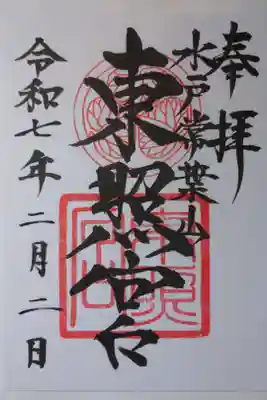 奉拝
水戸常葉山
東照宮
令和七年二月二日